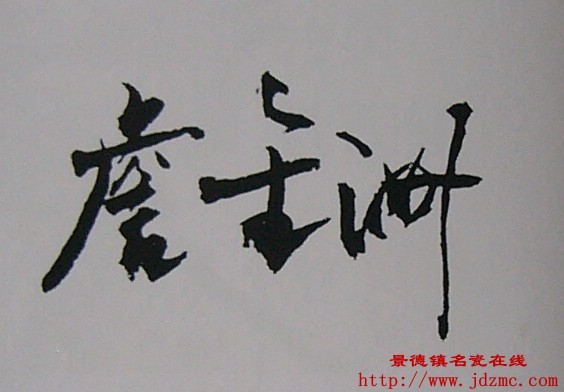 詹 洲
景德镇名瓷在线
http://www.jdzmc.com